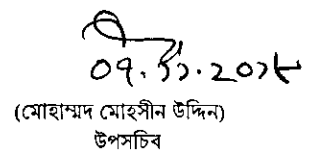 ০৭.১১.২০১৮
(মোহাম্মদ মোহসীন উদ্দিন)
উপসচিব